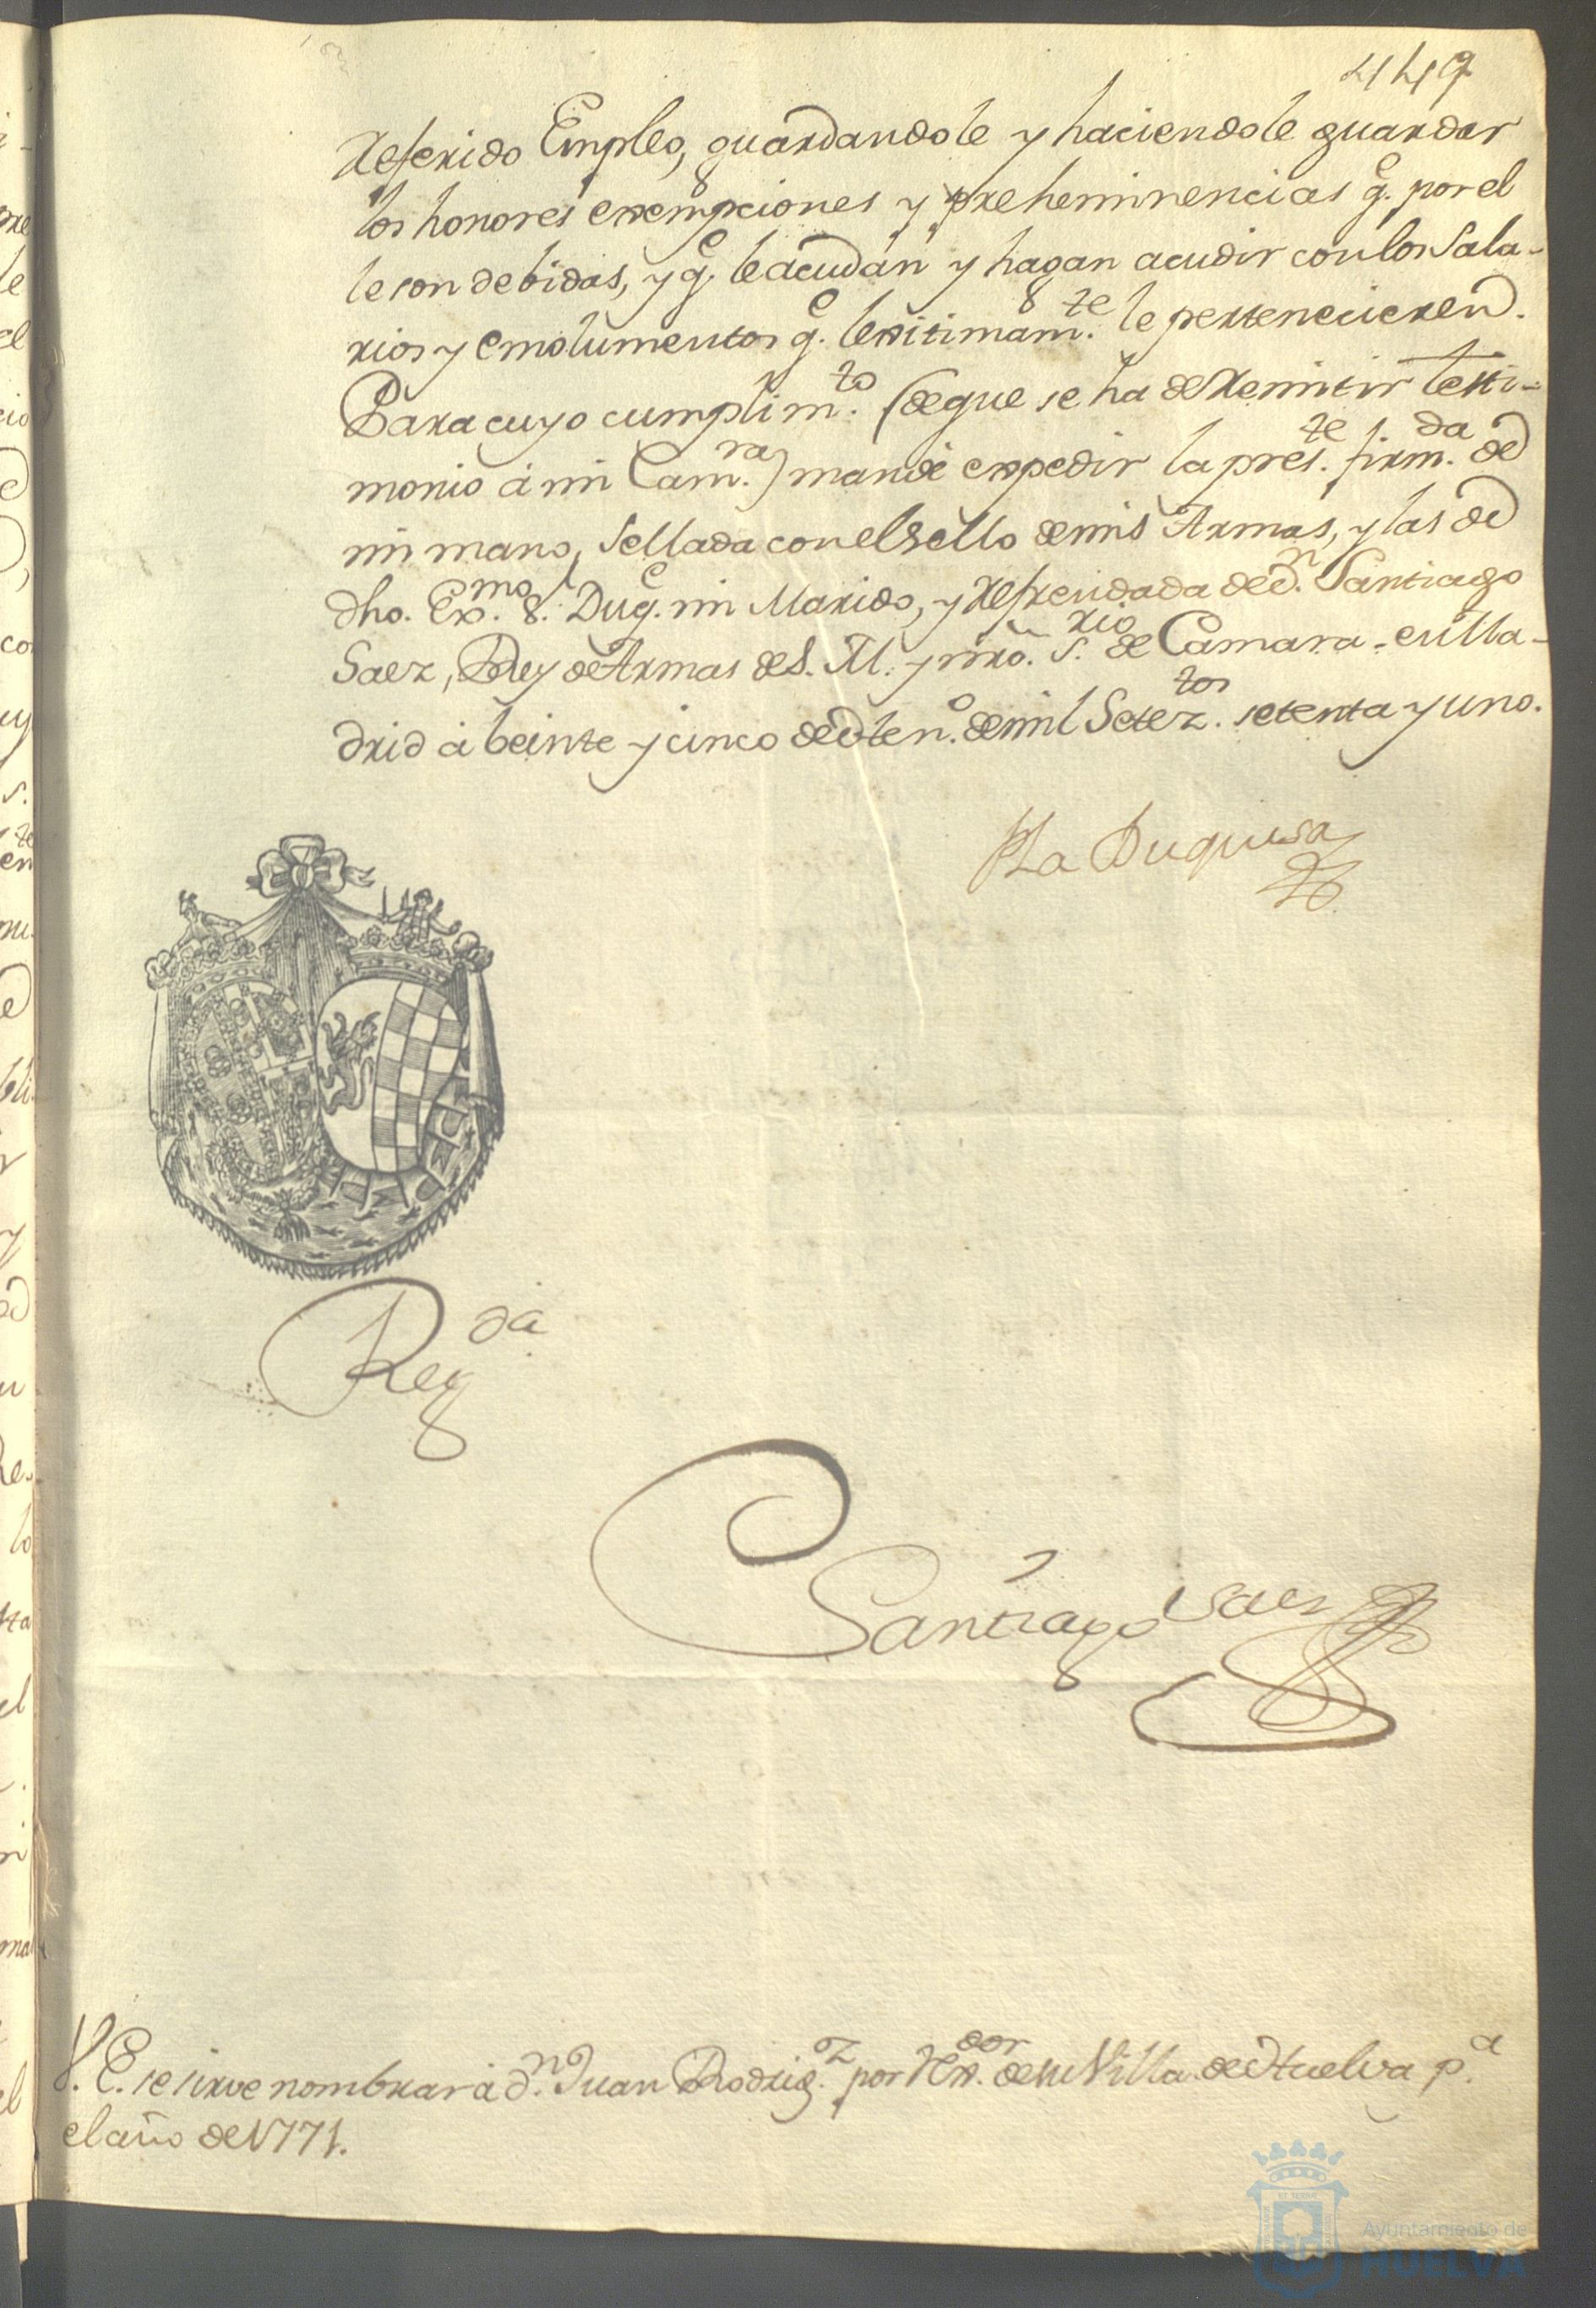 449
referido Empleo, guardandole y haciendole guardar
los honores exempciones y preheminencias q.e por el
le son debidas, y q.e le acudan y hagan acudir con los Sala-
rios y emolumentos q.e lexitimam.te le pertenecieren.
Para cuyo cumplim.to (de que se ha de Remitir testi-
monio á mi Cam.ra) mandé expedir la pres.te firm.da de
mi mano, Sellada con el Sello de mis Armas, y las de
dho. Ex.mo S. Duq.e mi Marido, y Refrendada de d.n Santiago
Saez, Rey de Armas de S. M. y mro. S.rio de Camara en Ma-
drid á beinte y cinco de En.o de mil Setez.tos setenta y uno.
La Duquesa
Reg.da
Santiago Saez
V. E. se sirve nombrar á d.n Juan Rodrig.z por Rex.dor de su Villa de Huelva p.a
el año de 1771.
Ayuntamiento de
HUELVA